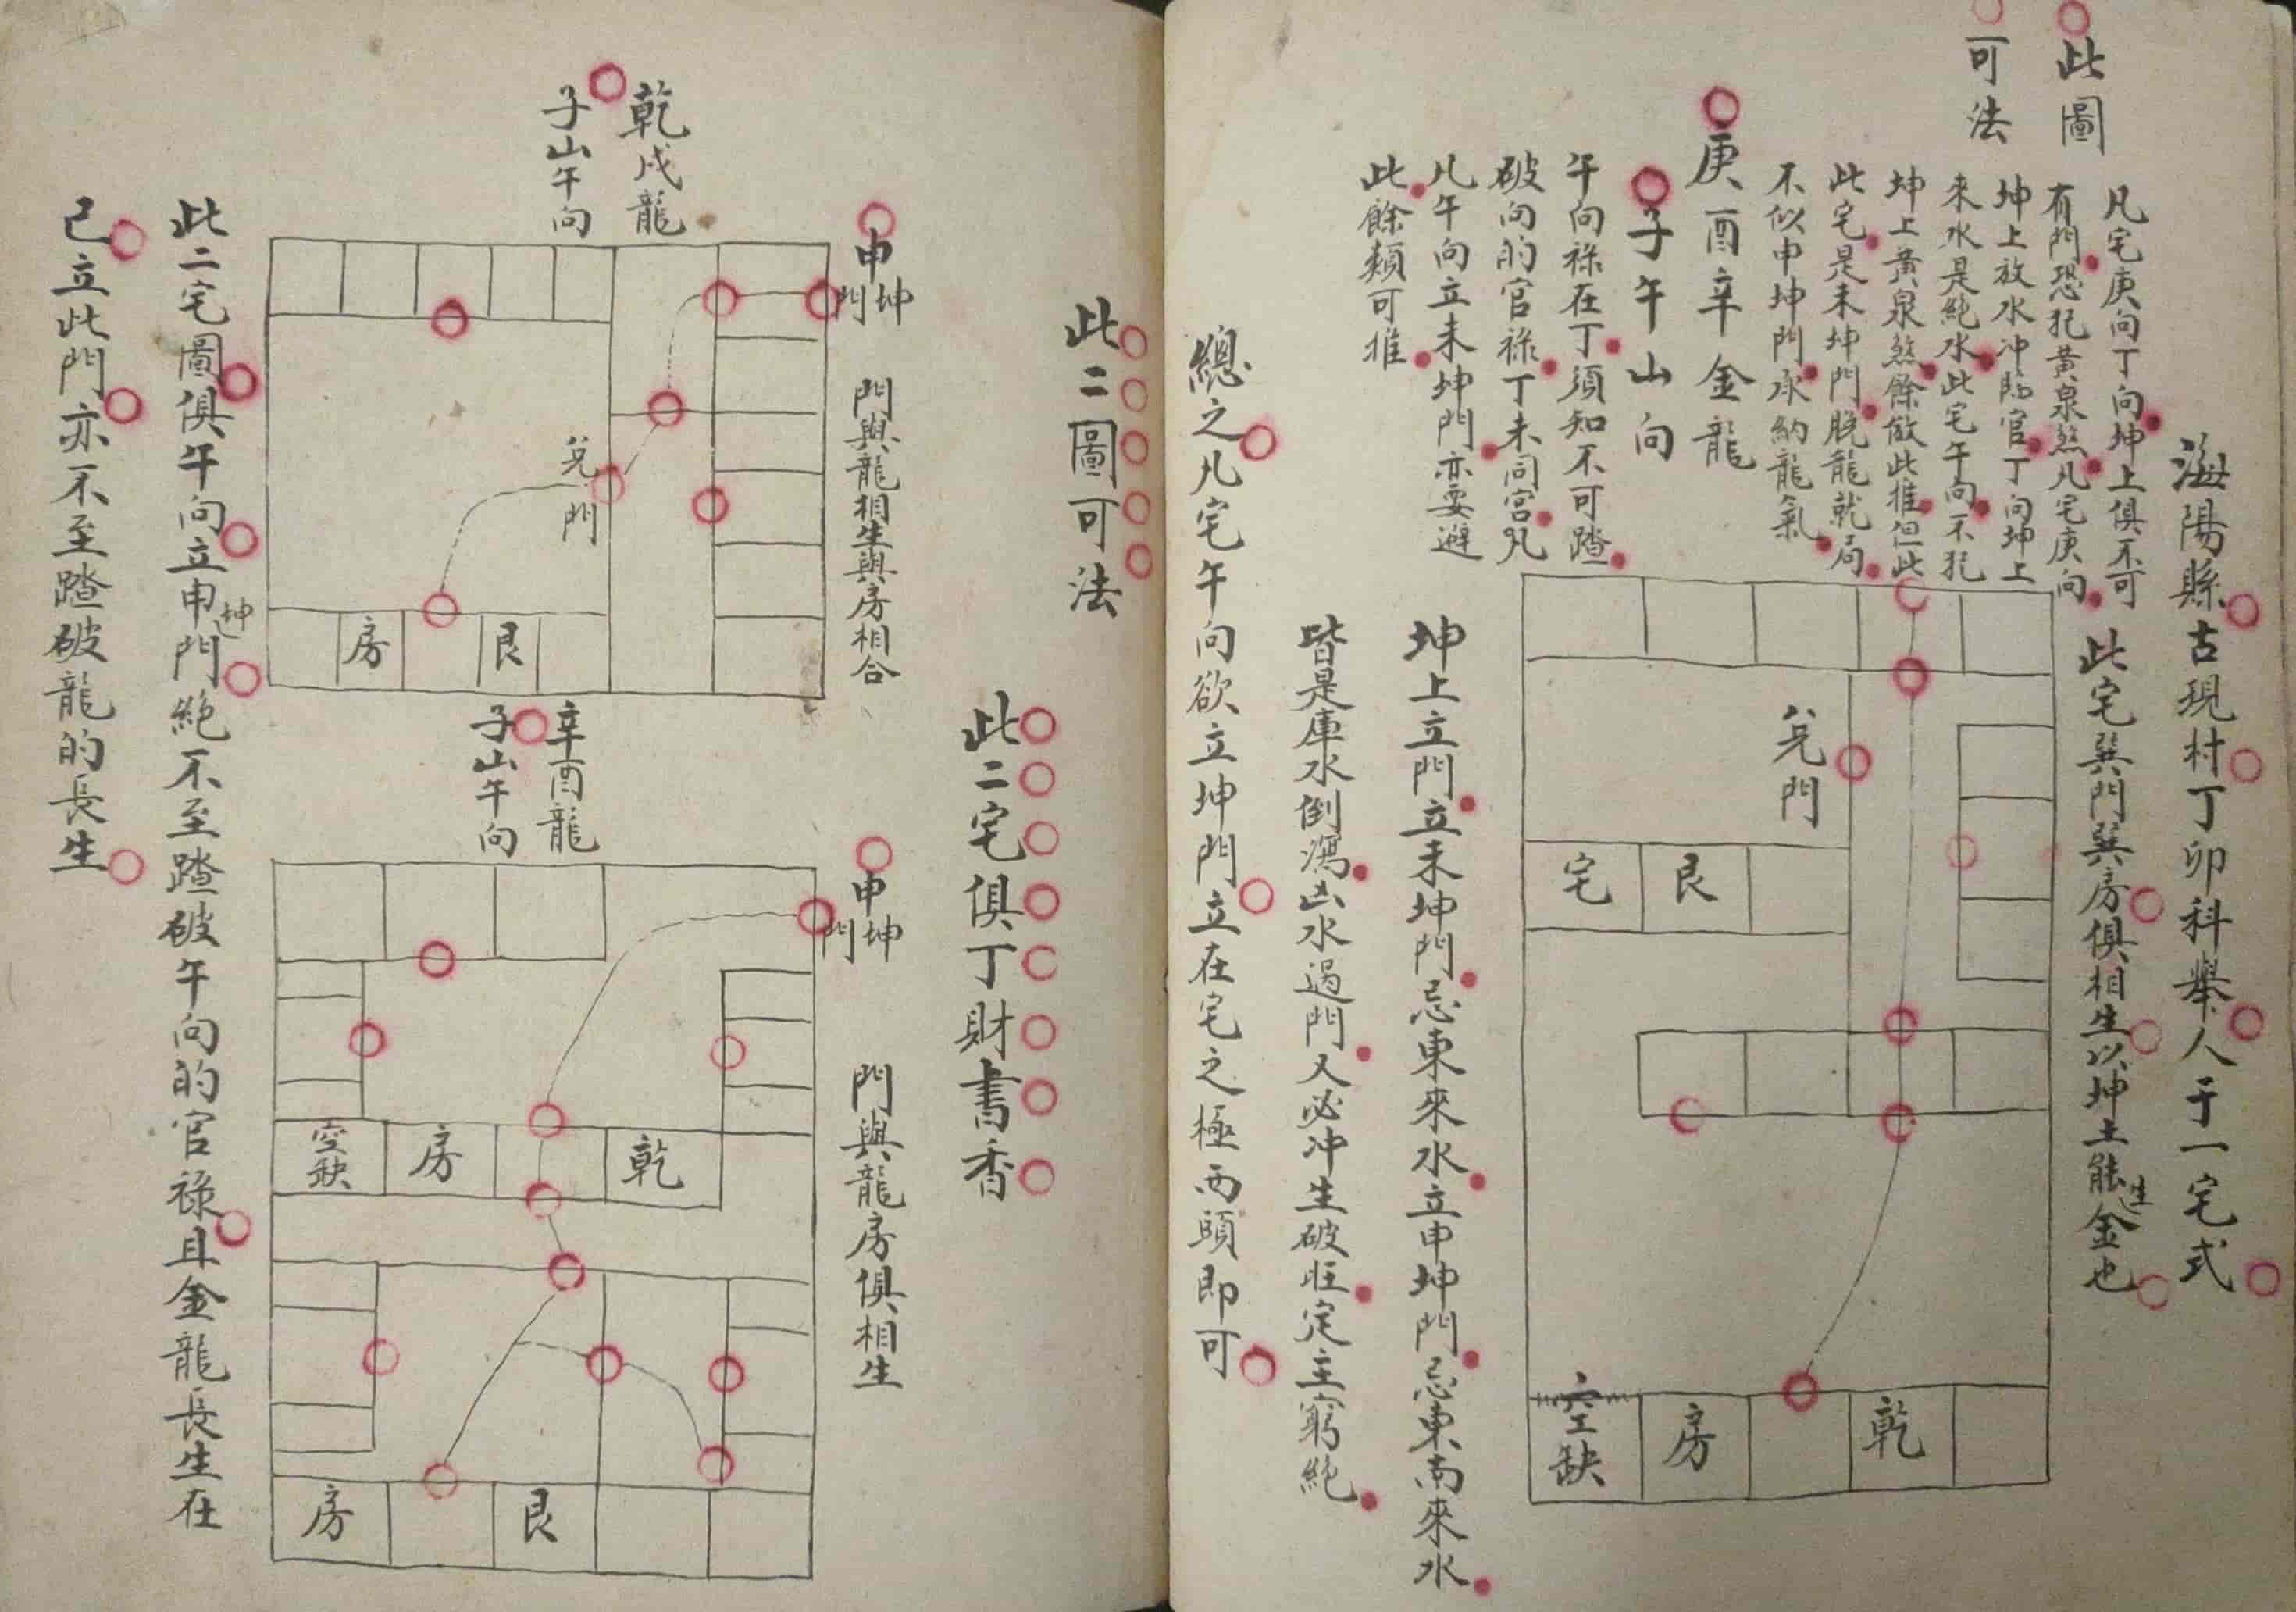 海陽縣古現村丁卯科舉人于一宅式
此圖
可法
凡宅庚向丁向坤上俱不可
有門恐犯黃泉煞凡宅庚向
坤上放水冲臨官丁向坤上
來水是絶水此宅午向不犯
坤上黃泉煞餘倣此推但此
此宅是未坤門脫龍就局
不似申坤門承納龍氣
此宅巽門巽房俱相生以坤土能生金也
庚酉辛金龍
子午山向
午向祿在丁須知不可踏
破向的官祿丁未同宮凡
凡午向立未坤門亦要避
此餘類可推
兌門
宅 艮
空缺 房 乾
坤上立門立未坤門忌東來水立申坤門忌東南來水
皆是庫水倒瀉凶水過門又必冲生破旺定主窮絶
總之凡宅午向欲立坤門立在宅之極西頭即可
此二圖可法
此二宅俱丁財書香
乾戌龍
子山午向
申坤門
門與龍相生與房相合
兌門
房 艮
辛酉龍
子山午向
申坤門
門與龍房俱相生
空缺 房 乾
房 艮
此二宅圖俱午向立申坤門絶不至踏破午向的官祿且金龍長生在
已立此門亦不至踏破龍的長生